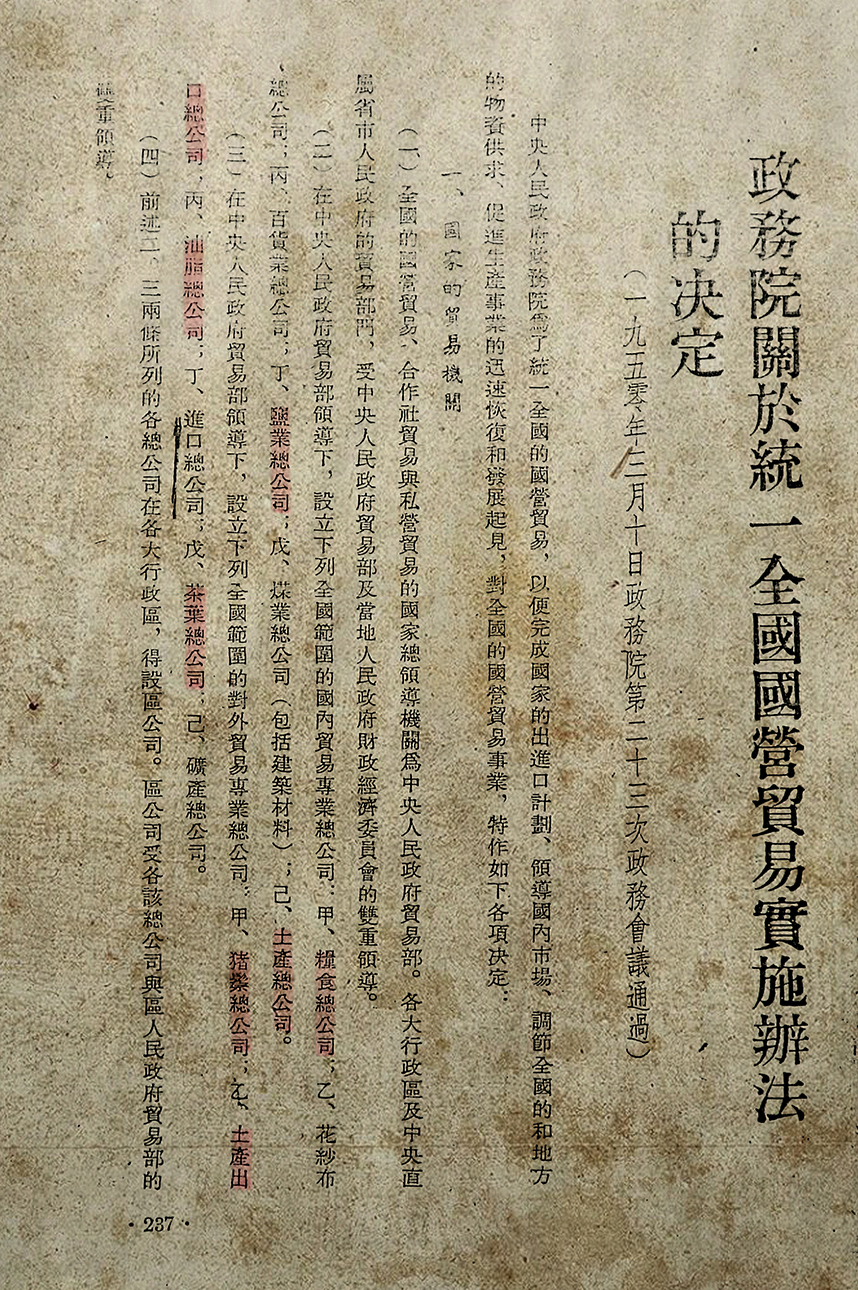 政務院關於統一全國國營貿易實施辦法
的决定
（一九五零年三月十日政務院第二十三次政務會議通過）
中央人民政府政務院爲了統一全國的國營貿易，以便完成國家的出進口計劃、領導國內市場、調節全國的和地方
的物資供求、促進生產事業的迅速恢復和發展起見，對全國的國營貿易事業，特作如下各項決定：
一、國家的貿易機關
（一）全國的國營貿易、合作社貿易與私營貿易的國家總領導機關爲中央人民政府貿易部。各大行政區及中央直
屬省市人民政府的貿易部門，受中央人民政府貿易部及當地人民政府財政經濟委員會的雙重領導。
（二）在中央人民政府貿易部領導下，設立下列全國範圍的國內貿易專業總公司：甲、糧食總公司；乙、花紗布
總公司；丙、百貨業總公司；丁、鹽業總公司；戊、煤業總公司（包括建築材料）；己、土產總公司。
（三）在中央人民政府貿易部領導下，設立下列全國範圍的對外貿易專業總公司：甲、猪鬃總公司；乙、土產出
口總公司；丙、油脂總公司；丁、進口總公司；戊、茶葉總公司；己、礦產總公司。
（四）前述二、三兩條所列的各總公司在各大行政區，得設區公司。區公司受各該總公司與區人民政府貿易部的
雙重領導。
·237·